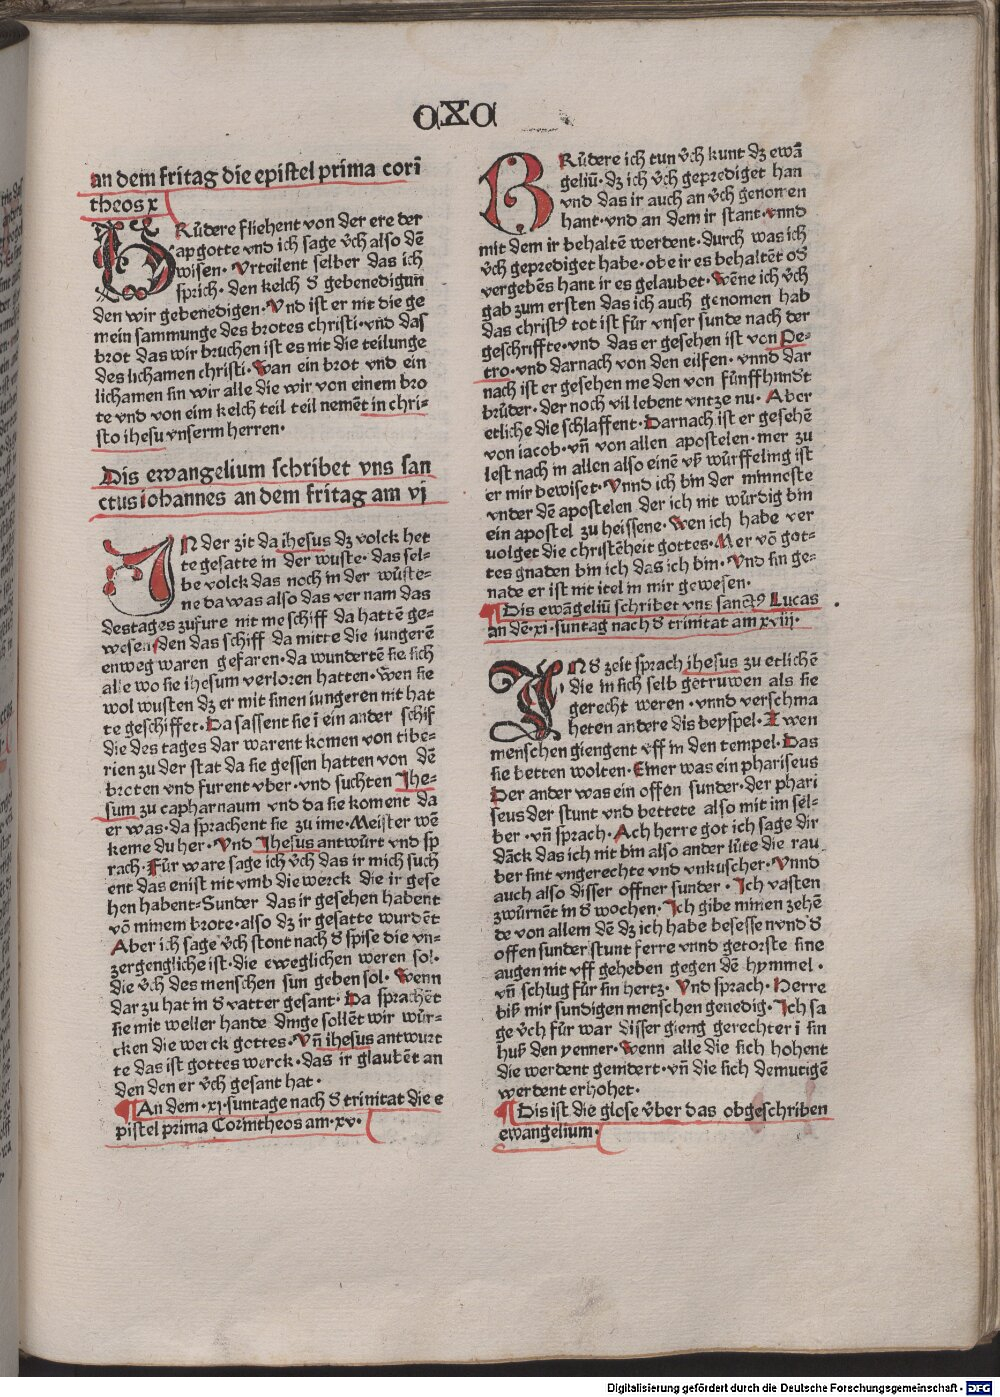 CXC
an dem fritag die epistel prima cori
theos x
BRůdere fliehent von der ere der
apgotte vnd ich sage v̊ch also dē
wisen. Vrteilent selber das ich
sprich. den kelch d̕ gebenedigun
den wir gebenedigen. Vnd ist er nit die ge
mein sammunge des brotes christi. vnd das
brot das wir bruchen ist es nit die teilunge
des lichamen christi. Wan ein brot vnd ein
lichamen sin wir alle die wir von einem bro
te vnd von eim kelch teil teil nemēt in chri-
sto ihesu vnserm herren.
Dis ewangelium schribet vns san
ctus iohannes an dem fritag am vj
IN der zit da ihesus dz volck het
te gesatte in der wuste. das sel-
be volck das noch in der wůste-
ne da was also das ver nam das
des tages zufure nit me schiff da hattē ge-
wesen den das schiff da mitte die iungerē
enweg waren gefaren. da wundertē sie sich
alle wo sie ihesum verloren hatten. Wen sie
wol wusten dz er mit sinen iungeren nit hat
te geschiffet. Da sassent sie i ein ander schif
die des tages dar warent komen von tibe-
rien zu der stat da sie gessen hatten von dē
broten vnd furent vber. vnd suchten Ihe-
sum zu capharnaum vnd da sie koment da
er was. da sprachent sie zu ime. Meister wē
keme du her. Vnd Ihesus antwůrt vnd sp
rach. Fůr ware sage ich v̊ch das ir mich such
ent das enist nit vmb die werck die ir gese
hen habent. Sunder das ir gesehen habent
vō minem brote. also dz ir gesatte wurdēt
Aber ich sage v̊ch stont nach d̕ spise die vn-
zergengliche ist. die eweglichen weren sol.
die v̊ch des menschen sun geben sol. Wenn
dar zu hat in d̕ vatter gesant. Da sprachēt
sie mit weller hande dinge sollēt wir wůr-
cken die werck gottes. Vn̄ ihesus antwurt
te das ist gottes werck. das ir glaubēt an
den den er v̊ch gesant hat.
An dem .xj. suntage nach d̕ trinitat die e
pistel prima Corintheos am .xv.
BRůdere ich tun v̊ch kunt dz ewā
geliū. dz ich v̊ch geprediget han
vnd das ir auch an v̊ch genomen
hant. vnd an dem ir stant. vnnd
mit dem ir behaltē werdent. durch was ich
v̊ch geprediget habe. obe ir es behaltēt od̕
vergebēs hant ir es gelaubet. Wēne ich v̊ch
gab zum ersten das ich auch genomen hab
das christꝰ tot ist fůr vnser sunde nach der
geschriffte. vnd das er gesehen ist von Pe-
tro. vnd darnach von den eilfen. vnnd dar
nach ist er gesehen me den von fůnffhundt
brůder. der noch vil lebent vntze nu. Aber
etliche die schlaffent. Darnach ist er gesehē
von iacob. vn̄ von allen apostelen. mer zu
lest nach in allen also einē vß wůrffeling ist
er mir bewiset. Vnnd ich bin der minneste
vnder dē apostelen der ich nit wůrdig bin
ein apostel zu heissene. Wen ich habe ver
uolget die christēheit gottes. Mer vō got-
tes gnaden bin ich das ich bin. Vnd sin ge-
nade er ist nit itel in mir gewesen.
Dis ewāgeliū schribet vns sanctꝰ Lucas
an dē .xi. suntag nach d̕ trinitat am xviij.
IN d̕ zeit sprach ihesus zu etlichē
die in sich selb getruwen als sie
gerecht weren. vnnd verschma
heten andere dis beyspel. Zwen
menschen giengent vff in den tempel. Das
sie betten wolten. Einer was ein phariseus
Der ander was ein offen sunder. der phari
seus der stunt vnd bettete also mit im sel-
ber. vn̄ sprach. Ach herre got ich sage dir
dāck das ich nit bin also ander lůte die rau
ber sint vngerechte vnd vnkuscher. Vnnd
auch also disser offner sunder. Ich vasten
zwůrnēt in d̕ wochen. Ich gibe minen zehē
de von allem dē dz ich habe besesse nvnd d̕
offen sunder stunt ferre vnnd getorste sine
augen nit vff geheben gegen dē hymmel.
vn̄ schlug fůr sin hertz. Vnd sprach. Herre
biß mir sundigen menschen genedig. Ich sa
ge v̊ch fůr war disser gieng gerechter i sin
huß den yenner. Wenn alle die sich hohent
die werdent genidert. vn̄ die sich demutigē
werdent erhohet.
Dis ist die glose v̊ber das obgeschriben
ewangelium.
Digitalisierung gefördert durch die Deutsche Forschungsgemeinschaft - DFG